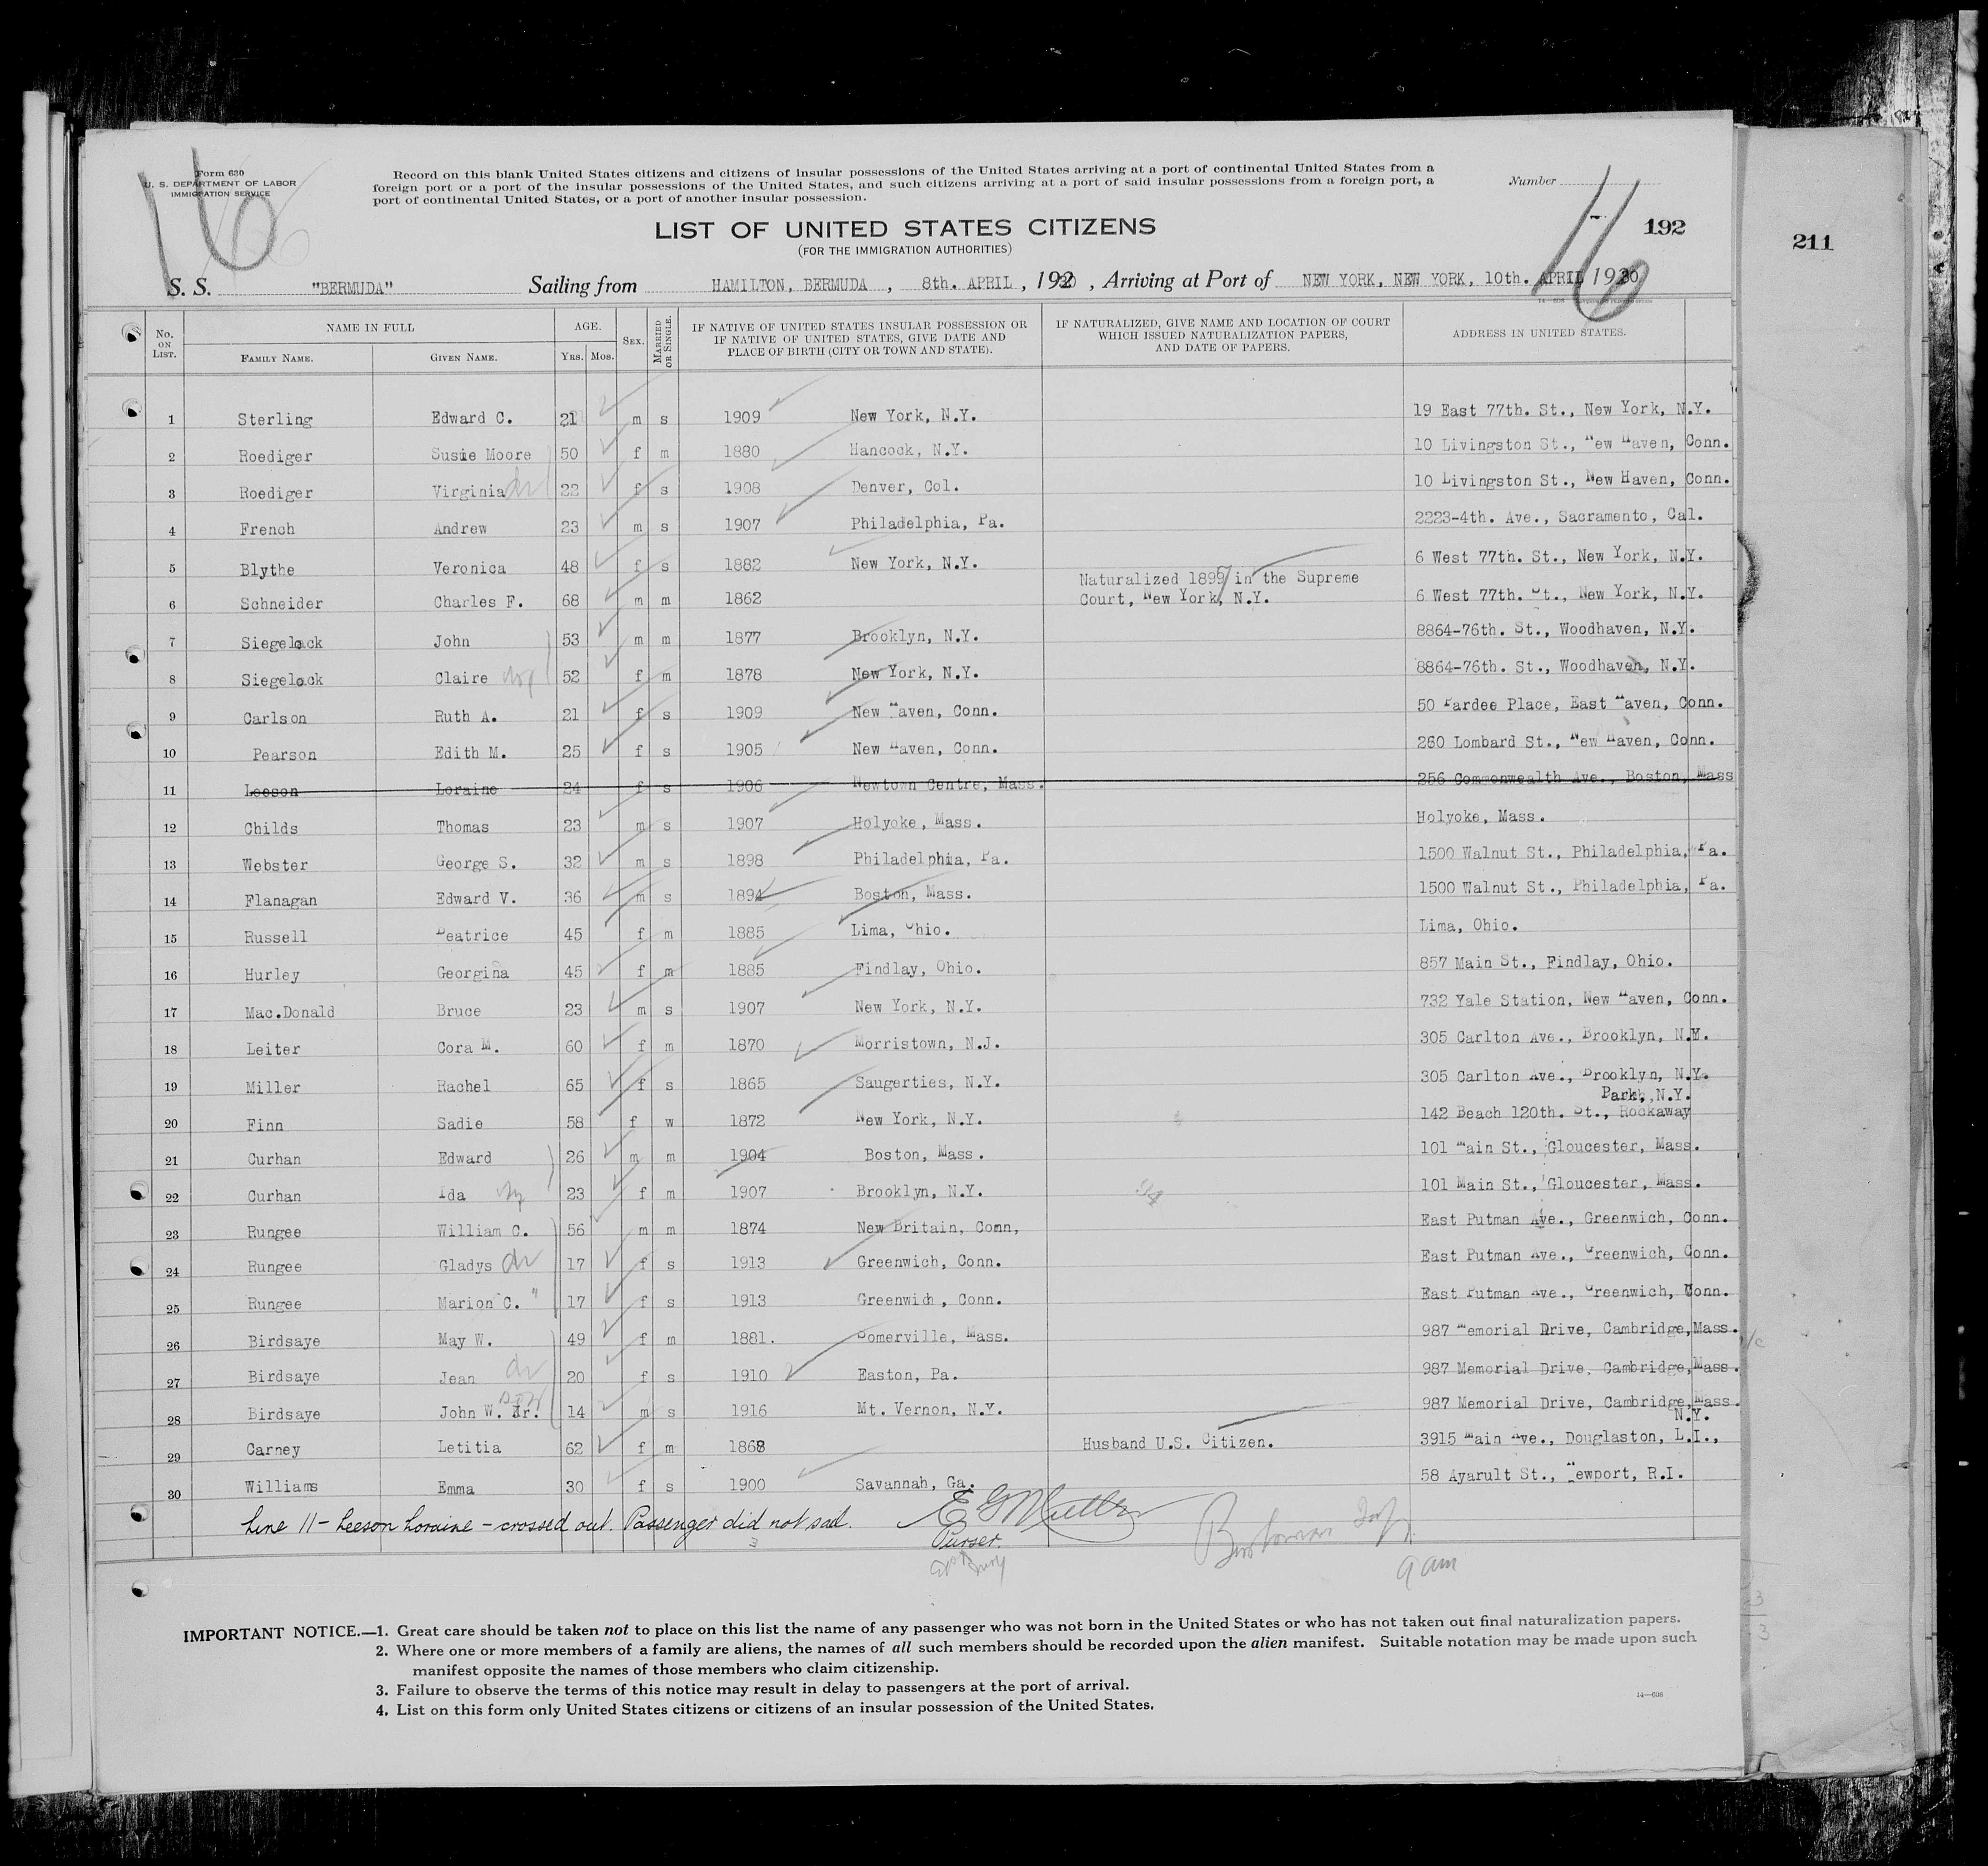 Form 630
U. S. DEPARTMENT OF LABOR
IMMIGRATION SERVICE
16
Record on this blank United States citizens and citizens of insular possessions of the United States arriving at a port of continental United States from a
foreign port or a port of the insular possessions of the United States, and such citizens arriving at a port of said insular possessions from a foreign port, a
port of continental United States, or a port of another insular possession.
Number
16
192
211
LIST OF UNITED STATES CITIZENS
(FOR THE IMMIGRATION AUTHORITIES)
S. S. "BERMUDA" Sailing from HAMILTON, BERMUDA , 8th. APRIL , 1930 , Arriving at Port of NEW YORK, NEW YORK, 10th. APRIL 1930
No. ON LIST. NAME IN FULL AGE. SEX. MARRIED OR SINGLE. IF NATIVE OF UNITED STATES INSULAR POSSESSION OR IF NATIVE OF UNITED STATES, GIVE DATE AND PLACE OF BIRTH (CITY OR TOWN AND STATE). IF NATURALIZED, GIVE NAME AND LOCATION OF COURT WHICH ISSUED NATURALIZATION PAPERS, AND DATE OF PAPERS. ADDRESS IN UNITED STATES.
FAMILY NAME. GIVEN NAME. YRS. MOS.
1 Sterling Edward C. 21 m s 1909 New York, N.Y. 19 East 77th. St., New York, N.Y.
2 Roediger Susie Moore 50 f m 1880 Hancock, N.Y. 10 Livingston St., New Haven, Conn.
3 Roediger Virginia 22 f s 1908 Denver, Col. 10 Livingston St., New Haven, Conn.
4 French Andrew 23 m s 1907 Philadelphia, Pa. 2223-4th. Ave., Sacramento, Cal.
5 Blythe Veronica 48 f s 1882 New York, N.Y. 6 West 77th. St., New York, N.Y.
6 Schneider Charles F. 68 m m 1862 Naturalized 1897 in the Supreme Court, New York, N.Y. 6 West 77th. St., New York, N.Y.
7 Siegelock John 53 m m 1877 Brooklyn, N.Y. 8864-76th. St., Woodhaven, N.Y.
8 Siegelock Claire 52 f m 1878 New York, N.Y. 8864-76th. St., Woodhaven, N.Y.
9 Carlson Ruth A. 21 f s 1909 New Haven, Conn. 50 Pardee Place, East Haven, Conn.
10 Pearson Edith M. 25 f s 1905 New Haven, Conn. 260 Lombard St., New Haven, Conn.
11 Leeson Loraine 24 f s 1906 Newtown Centre, Mass. 256 Commonwealth Ave., Boston, Mass
12 Childs Thomas 23 m s 1907 Holyoke, Mass. Holyoke, Mass.
13 Webster George S. 32 m s 1898 Philadelphia, Pa. 1500 Walnut St., Philadelphia, Pa.
14 Flanagan Edward V. 36 m s 1894 Boston, Mass. 1500 Walnut St., Philadelphia, Pa.
15 Russell Beatrice 45 f m 1885 Lima, Ohio. Lima, Ohio.
16 Hurley Georgina 45 f m 1885 Findlay, Ohio. 857 Main St., Findlay, Ohio.
17 Mac.Donald Bruce 23 m s 1907 New York, N.Y. 732 Yale Station, New Haven, Conn.
18 Leiter Cora M. 60 f m 1870 Morristown, N.J. 305 Carlton Ave., Brooklyn, N.Y.
19 Miller Rachel 65 f s 1865 Saugerties, N.Y. 305 Carlton Ave., Brooklyn, N.Y.
20 Finn Sadie 58 f w 1872 New York, N.Y. 142 Beach 120th. St., Rockaway Park, N.Y.
21 Curhan Edward 26 m m 1904 Boston, Mass. 101 Main St., Gloucester, Mass.
22 Curhan Ida 23 f m 1907 Brooklyn, N.Y. 101 Main St., Gloucester, Mass.
23 Rungee William C. 56 m m 1874 New Britain, Conn, East Putman Ave., Greenwich, Conn.
24 Rungee Gladys 17 f s 1913 Greenwich, Conn. East Putman Ave., Greenwich, Conn.
25 Rungee Marion C. " 17 f s 1913 Greenwich, Conn. East Putman Ave., Greenwich, Conn.
26 Birdsaye May W. 49 f m 1881. Somerville, Mass. 987 Memorial Drive, Cambridge, Mass.
27 Birdsaye Jean 20 f s 1910 Easton, Pa. 987 Memorial Drive, Cambridge, Mass.
28 Birdsaye John W. Jr. 14 m s 1916 Mt. Vernon, N.Y. 987 Memorial Drive, Cambridge, Mass.
29 Carney Letitia 62 f m 1868 Husband U.S. Citizen. 3915 Main Ave., Douglaston, L.I., N.Y.
30 Williams Emma 30 f s 1900 Savannah, Ga. 58 Ayarult St., Newport, R.I.
Line 11 - Leeson Loraine - crossed out. Passenger did not sail.
Purser.
9 am
IMPORTANT NOTICE.—1. Great care should be taken not to place on this list the name of any passenger who was not born in the United States or who has not taken out final naturalization papers.
2. Where one or more members of a family are aliens, the names of all such members should be recorded upon the alien manifest. Suitable notation may be made upon such
manifest opposite the names of those members who claim citizenship.
3. Failure to observe the terms of this notice may result in delay to passengers at the port of arrival.
4. List on this form only United States citizens or citizens of an insular possession of the United States.
14—608